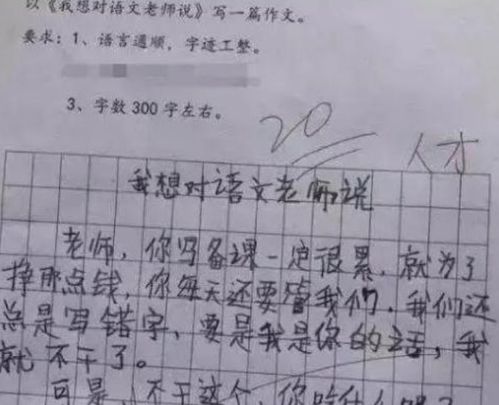 以《我想对语文老师说》写一篇作文。
要求：1、语言通顺，字迹工整。
3、字数 300 字左右。
20 人才
我想对语文老师说
老师，你写备课一定很累，就为了
挣那点钱，你每天还要管我们，我们还
总是写错字，要是我是你的话，我
就不干了。
可是，不干这个，你吃什么呢？